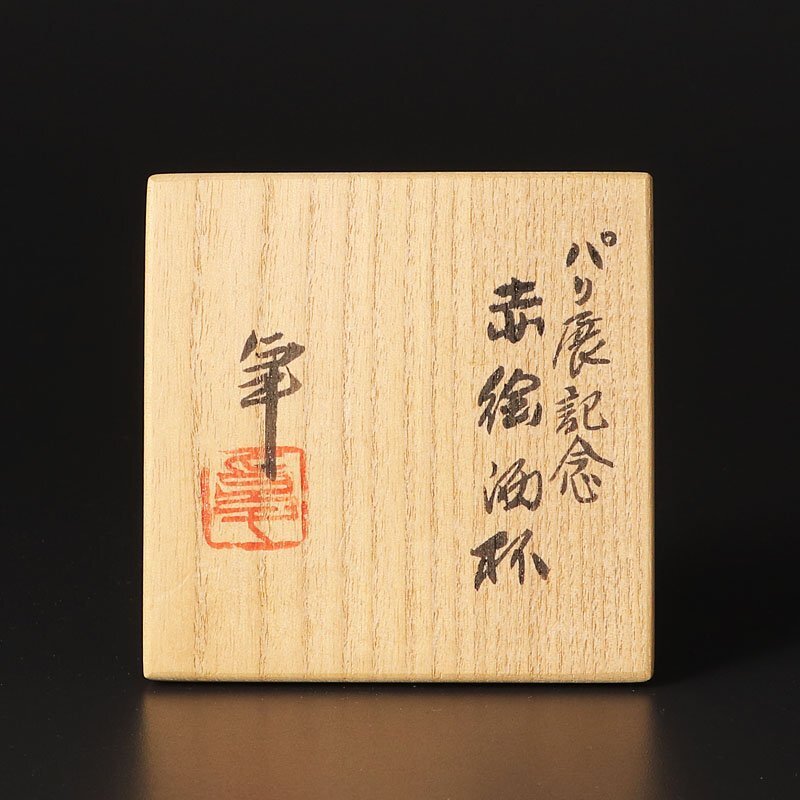 パリ展記念
赤絵酒杯